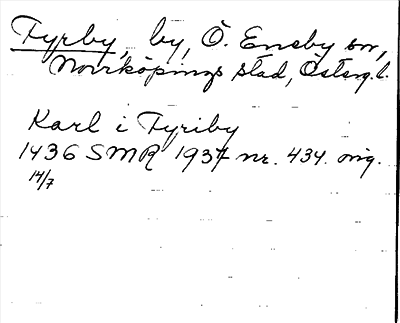 Tyrby, by, Ö. Eneby sn,
Norrköpings stad, Österg. l.
Karl i Tyriby
1436 SMR 1937 nr. 434. orig.
14/7